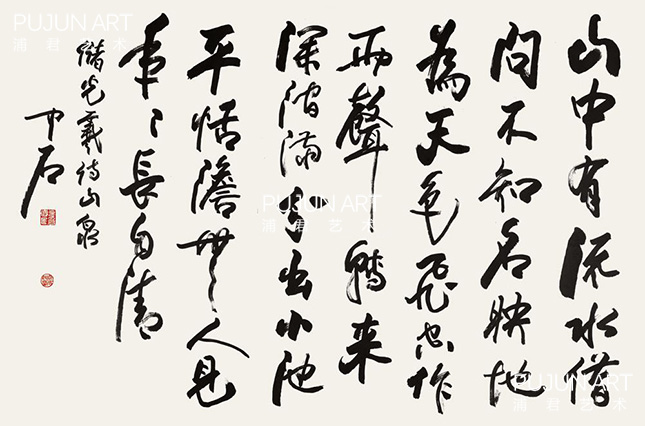 山中有流水借
问不知名映地
為天色飛空作
雨聲轉来
深澗满分出小池
平恬澹無人見
年〻長自清
儲光羲诗山泉
中石
PUJUN ART
浦君艺术
PUJUN ART
浦君艺术
PUJUN ART
浦君艺术